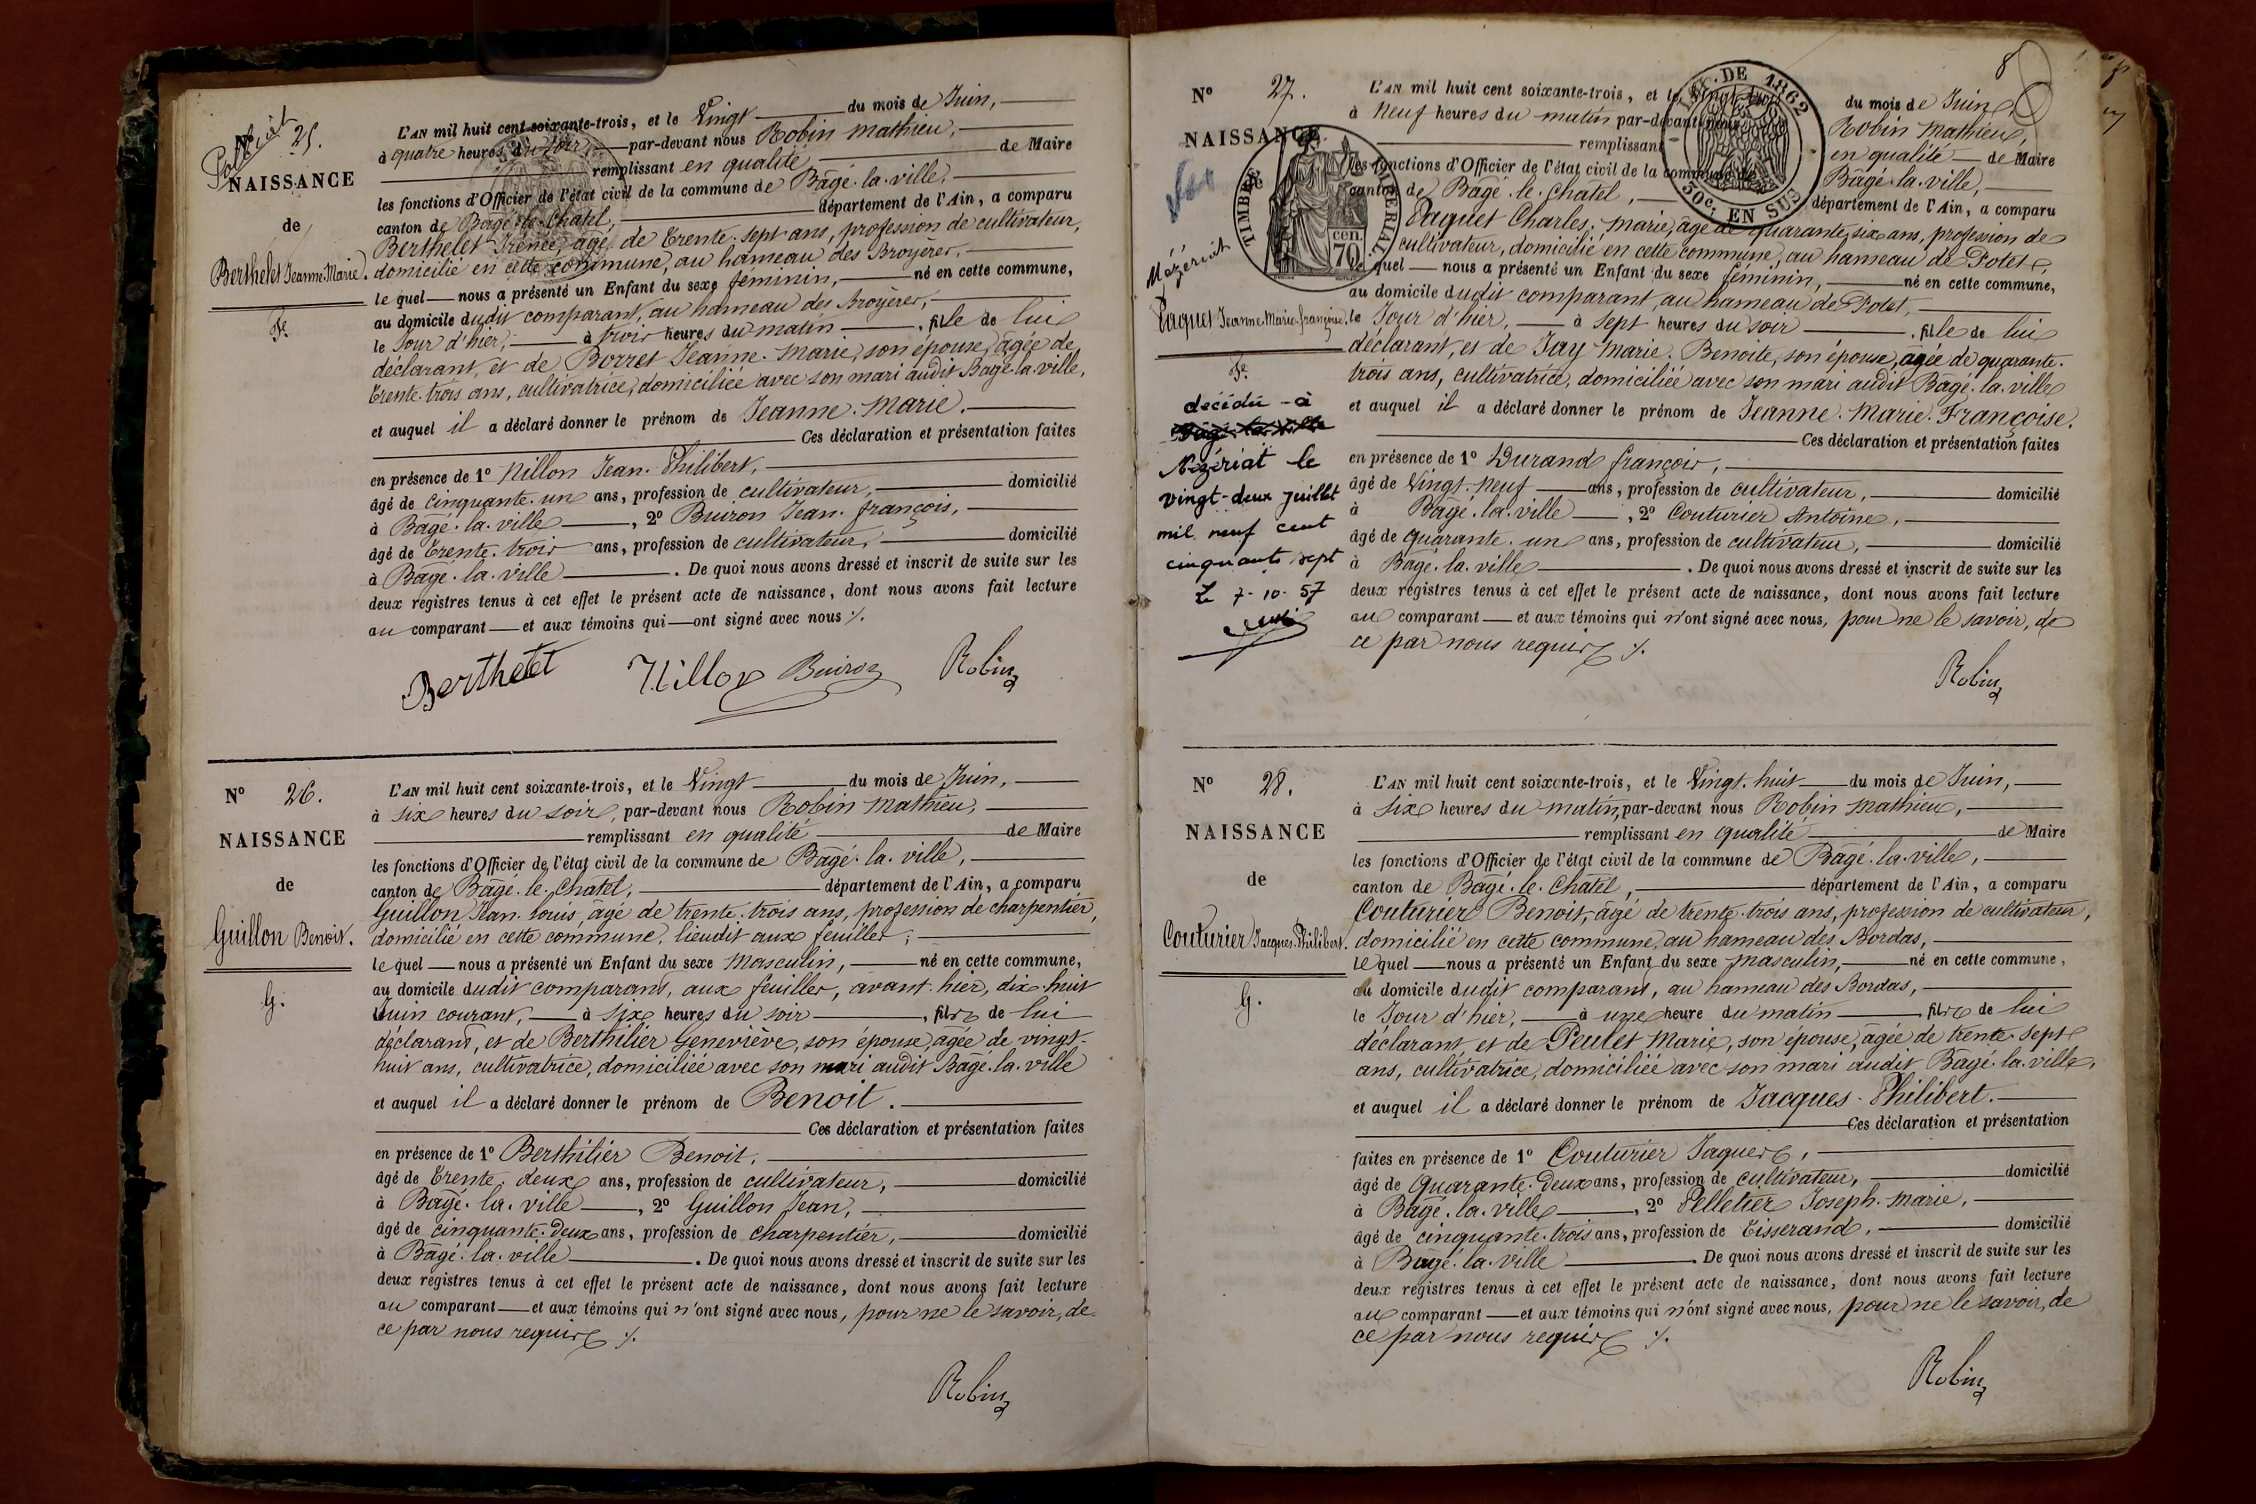 Polliat
N° 25.
NAISSANCE
de
Berthelet Jeanne-Marie.
Fe
L'AN mil huit cent soixante-trois, et le Vingt du mois de Juin,
à quatre heures du soir, par-devant nous Robin Mathieu,
remplissant en qualité de Maire
les fonctions d'Officier de l'état civil de la commune de Bâgé-la-ville,
canton de Bâgé-le-Chatel, département de l'Ain, a comparu
Berthelet Irénée, âgé de trente-sept ans, profession de cultivateur,
domicilié en cette commune, au hameau des Broyères,
le quel nous a présenté un Enfant du sexe féminin, né en cette commune,
au domicile dudit comparant, au hameau des Broyères,
le Jour d'hier, à trois heures du matin, fille de lui
déclarant, et de Borret Jeanne-Marie, son épouse, âgée de
trente-trois ans, cultivatrice, domiciliée avec son mari audit Bâgé-la-ville,
et auquel il a déclaré donner le prénom de Jeanne-Marie.
Ces déclaration et présentation faites
en présence de 1° Nillon Jean-Philibert,
âgé de cinquante-un ans, profession de cultivateur, domicilié
à Bâgé-la-ville, 2° Buiron Jean-françois,
âgé de trente-trois ans, profession de cultivateur, domicilié
à Bâgé-la-ville. De quoi nous avons dressé et inscrit de suite sur les
deux registres tenus à cet effet le présent acte de naissance, dont nous avons fait lecture
au comparant et aux témoins qui ont signé avec nous ./.
Berthelet Nillon Buiron Robin
N° 26.
NAISSANCE
de
Guillon Benoit.
G.
L'AN mil huit cent soixante-trois, et le Vingt du mois de Juin,
à six heures du soir, par-devant nous Robin Mathieu,
remplissant en qualité de Maire
les fonctions d'Officier de l'état civil de la commune de Bâgé-la-ville,
canton de Bâgé-le-Châtel, département de l'Ain, a comparu
Guillon Jean-louis, âgé de trente-trois ans, profession de charpentier,
domicilié en cette commune, lieudit aux feuilles,
le quel nous a présenté un Enfant du sexe Masculin, né en cette commune,
au domicile dudit comparant, aux feuilles, avant-hier, dix-huit
Juin courant, à six heures du soir, fils de lui
déclarant, et de Berthilier Geneviève, son épouse, âgée de vingt-
huit ans, cultivatrice, domiciliée avec son mari audit Bâgé-la-ville
et auquel il a déclaré donner le prénom de Benoit.
Ces déclaration et présentation faites
en présence de 1° Berthilier Benoit,
âgé de trente-deux ans, profession de cultivateur, domicilié
à Bâgé-la-ville, 2° Guillon Jean,
âgé de cinquante-deux ans, profession de charpentier, domicilié
à Bâgé-la-ville. De quoi nous avons dressé et inscrit de suite sur les
deux registres tenus à cet effet le présent acte de naissance, dont nous avons fait lecture
au comparant et aux témoins qui n'ont signé avec nous, pour ne le savoir, de
ce par nous requis ./.
Robin
8
N° 27.
NAISSANCE
de
Mézériat
Paquet Jeanne-Marie-françoise.
Fe
décédée à
Bâgé-la-ville
Mézériat le
vingt-deux juillet
mil neuf cent
cinquante sept
Le 7-10-57
TIMBRE IMPERIAL
70 cen.
L. DE 1862
50c. EN SUS
L'AN mil huit cent soixante-trois, et le Vingt-trois du mois de Juin,
à Neuf heures du matin par-devant nous Robin Mathieu,
remplissant en qualité de Maire
les fonctions d'Officier de l'état civil de la commune de Bâgé-la-ville,
canton de Bâgé-le-Chatel, département de l'Ain, a comparu
Paquet Charles-Marie, âgé de quarante-six ans, profession de
cultivateur, domicilié en cette commune, au hameau de Potet,
le quel nous a présenté un Enfant du sexe féminin, né en cette commune,
au domicile dudit comparant, au hameau de Potet,
le Jour d'hier, à sept heures du soir, fille de lui
déclarant, et de Jay Marie-Benoite, son épouse, âgée de quarante-
trois ans, cultivatrice, domiciliée avec son mari audit Bâgé-la-ville
et auquel il a déclaré donner le prénom de Jeanne-Marie-Françoise.
Ces déclaration et présentation faites
en présence de 1° Durand françois,
âgé de Vingt-Neuf ans, profession de cultivateur, domicilié
à Bâgé-la-ville, 2° Couturier Antoine,
âgé de quarante-un ans, profession de cultivateur, domicilié
à Bâgé-la-ville. De quoi nous avons dressé et inscrit de suite sur les
deux registres tenus à cet effet le présent acte de naissance, dont nous avons fait lecture
au comparant et aux témoins qui n'ont signé avec nous, pour ne le savoir, de
ce par nous requis ./.
Robin
N° 28.
NAISSANCE
de
Couturier Jacques-Philibert.
G.
L'AN mil huit cent soixante-trois, et le Vingt-huit du mois de Juin,
à six heures du matin, par-devant nous Robin Mathieu,
remplissant en qualité de Maire
les fonctions d'Officier de l'état civil de la commune de Bâgé-la-ville,
canton de Bâgé-le-Châtel, département de l'Ain, a comparu
Couturier Benoit, âgé de trente-trois ans, profession de cultivateur,
domicilié en cette commune, au hameau des Bordas,
le quel nous a présenté un Enfant du sexe masculin, né en cette commune,
au domicile dudit comparant, au hameau des Bordas,
le Jour d'hier, à une heure du matin, fils de lui
déclarant, et de Peulet Marie, son épouse, âgée de trente-sept
ans, cultivatrice, domiciliée avec son mari audit Bâgé-la-ville,
et auquel il a déclaré donner le prénom de Jacques-Philibert.
Ces déclaration et présentation
faites en présence de 1° Couturier Jaques,
âgé de quarante-deux ans, profession de cultivateur, domicilié
à Bâgé-la-ville, 2° Pelletier Joseph-Marie,
âgé de cinquante-trois ans, profession de tisserand, domicilié
à Bâgé-la-ville. De quoi nous avons dressé et inscrit de suite sur les
deux registres tenus à cet effet le présent acte de naissance, dont nous avons fait lecture
au comparant et aux témoins qui n'ont signé avec nous, pour ne le savoir, de
ce par nous requis ./.
Robin